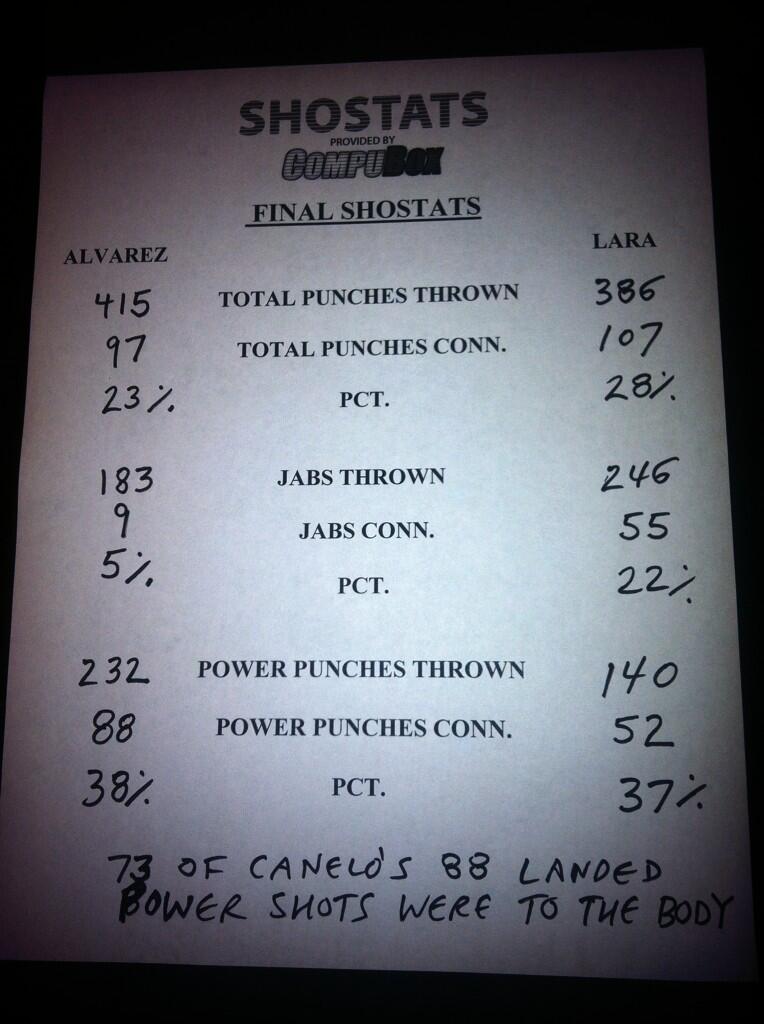 SHOSTATS
PROVIDED BY
COMPUBOX
FINAL SHOSTATS
ALVAREZ LARA
415 TOTAL PUNCHES THROWN 386
97 TOTAL PUNCHES CONN. 107
23% PCT. 28%
183 JABS THROWN 246
9 JABS CONN. 55
5% PCT. 22%
232 POWER PUNCHES THROWN 140
88 POWER PUNCHES CONN. 52
38% PCT. 37%
73 OF CANELO'S 88 LANDED
POWER SHOTS WERE TO THE BODY